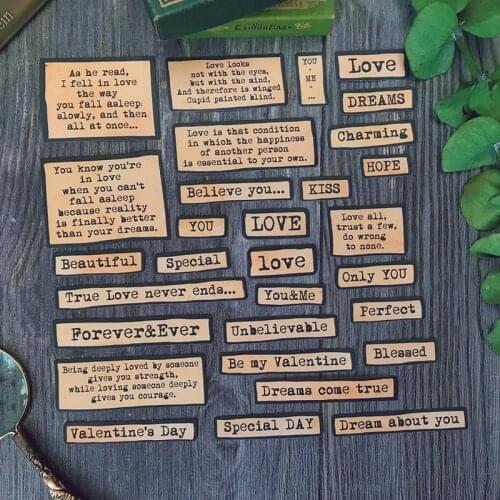 Camouflage
As he read,
I fell in love
the way
you fall asleep:
slowly, and then
all at once...
Love looks
not with the eyes,
but with the mind,
And therefore is winged
Cupid painted blind.
YOU
+
ME
=
...
Love
DREAMS
Love is that condition
in which the happiness
of another person
is essential to your own.
Charming
HOPE
You know you're
in love
when you can't
fall asleep
because reality
is finally better
than your dreams.
Believe you...
KISS
YOU
LOVE
Love all,
trust a few,
do wrong
to none.
Beautiful
Special
love
Only YOU
True Love never ends...
You&Me
Perfect
Forever&Ever
Unbelievable
Blessed
Being deeply loved by someone
gives you strength,
while loving someone deeply
gives you courage.
Be my Valentine
Dreams come true
Valentine's Day
Special DAY
Dream about you